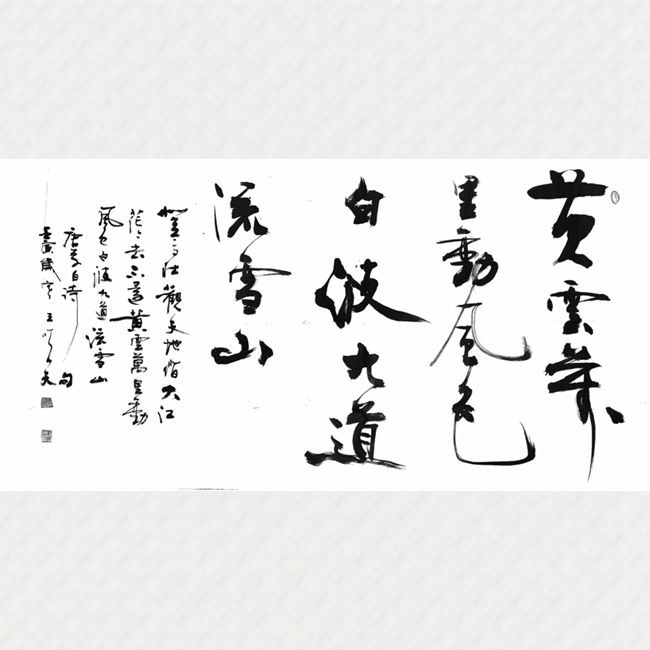 黄雲萬
里動風色
白波九道
流雪山
登高壮觀天地間大江
茫々去不還黄雲萬里動
風色白波九道流雪山
唐李白诗句
壬寅歲 王